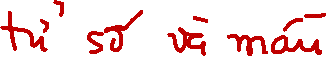 tử số và mẫu